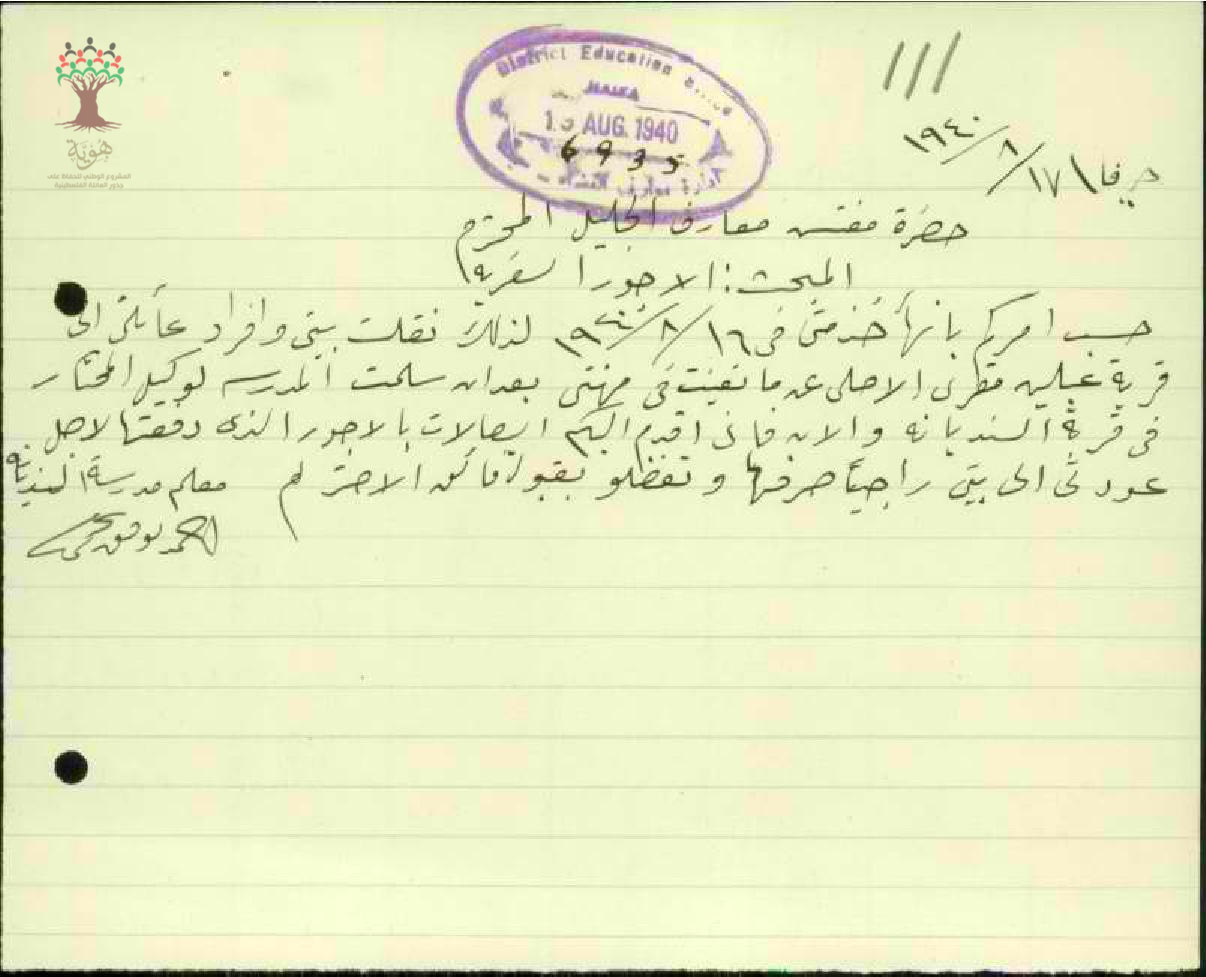 هوية
المشروع الوطني للحفاظ على
جذور العائلة الفلسطينية
District Education
HAIFA
AUG. 1940
6935
ادارة معارف
111
حيفا \ ١٧/٨/١٩٤٠
حضرة مفتش معارف الجليل المحترم
المبحث: الاجور السفرية
حسب امركم بانهأ خدمتى فى ١٦/٨/١٩٤٠ لذلك نقلت بيتى وافراد عائلتى الى
قرية عبلين مقرى الاصلى عند ما تعينت فى مهنتى بعد ان سلمت المدرسه لوكيل المختار
فى قرية السنديانه والان فانى اقدم اليكم ايصالات بالاجور الذى دفعتها لاجل
عودتى الى بيتى راجياً صرفها وتفضلو بقبول فائق الاحترام معلم مدرسة السنديانه
احمد توفيق